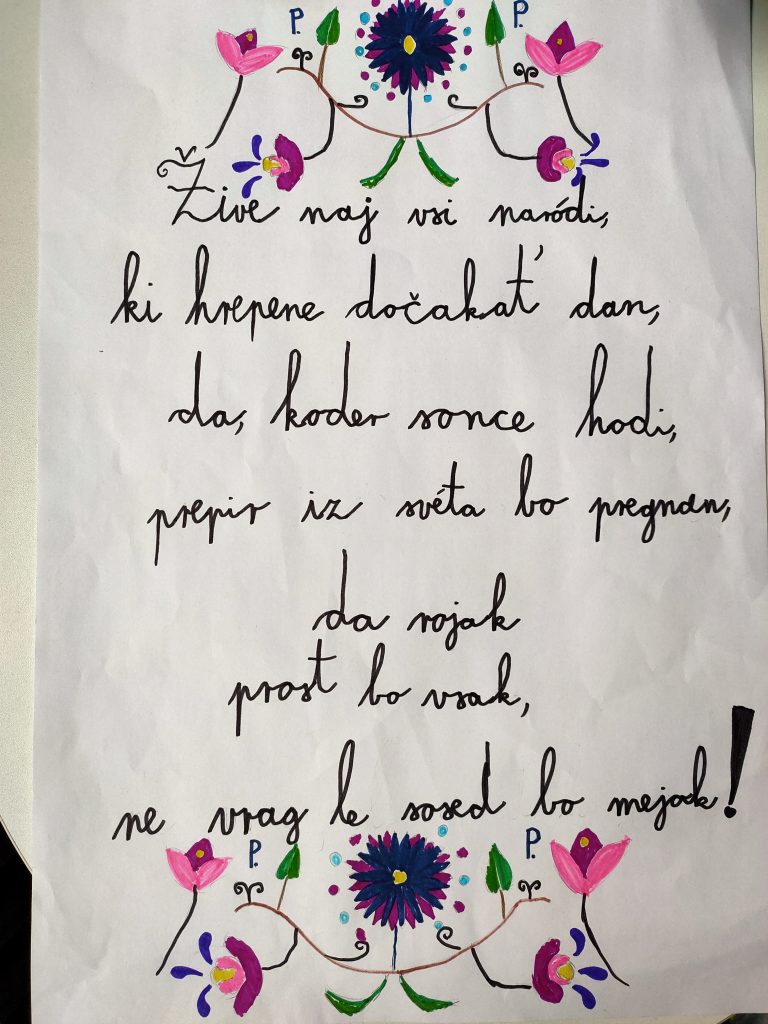 P. P.
Žive naj vsi naródi,
ki hrepene dočakat' dan,
da, koder sonce hodi,
prepir iz svéta bo pregnan,
da rojak
prost bo vsak,
ne vrag le sosed bo mejak!
P. P.